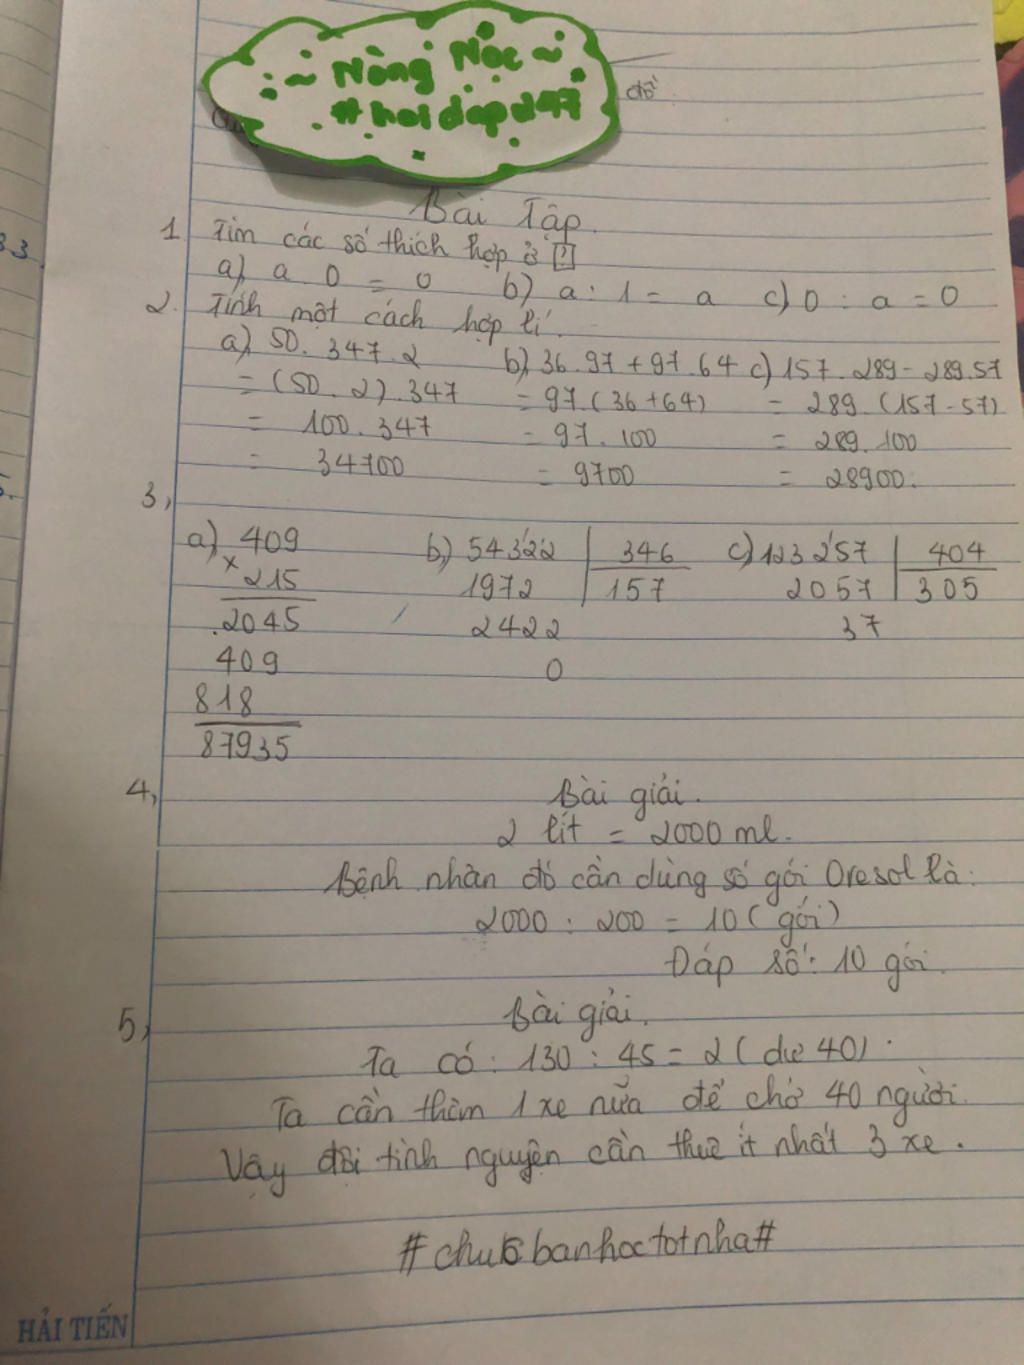 ~ Nòng Nọc ~
#hoidap247
đề
Bài Tập.
1. Tìm các số thích hợp ở [?]
a) a 0 = 0 b) a : 1 = a c) 0 : a = 0
2. Tính một cách hợp lí.
a) 50. 347. 2 b) 36. 97 + 97. 64 c) 157. 289 - 289.57
= (50. 2). 347 = 97. (36+64) = 289. (157-57)
= 100. 347 = 97. 100 = 289. 100
= 34700 = 9700 = 28900.
3,
a) 409 b,) 54322 346 c) 123257 404
x 215 1972 157 2057 305
2045 2422 37
409 0
818
87935
4, Bài giải.
2 lít = 2000 ml.
Bệnh nhân đó cần dùng số gói Oresol là:
2000 : 200 = 10 (gói)
Đáp số: 10 gói.
5, Bài giải.
Ta có: 130 : 45 = 2 (dư 40).
Ta cần thêm 1 xe nữa để chở 40 người.
Vậy đội tình nguyện cần thuê ít nhất 3 xe.
#chucbanhoctotnha#
HẢI TIẾN